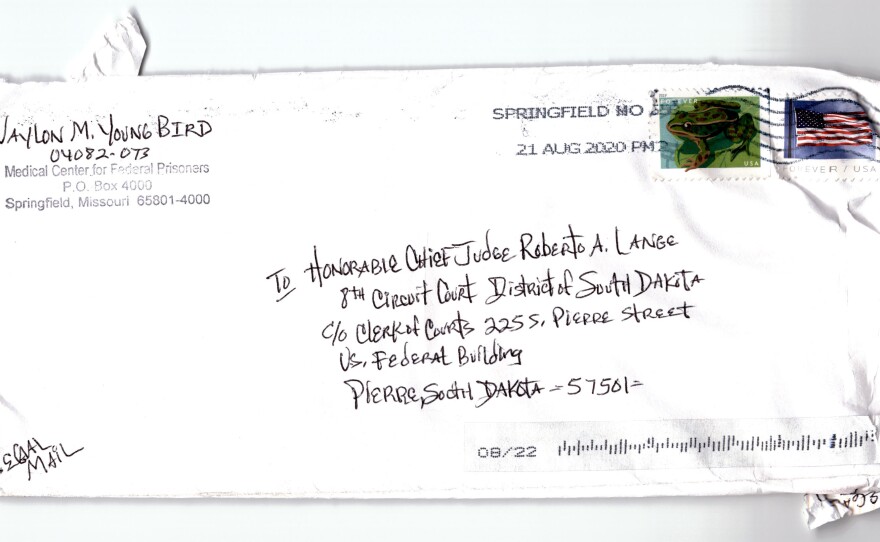 JAYLON M. YOUNG BIRD
04082-073
Medical Center for Federal Prisoners
P.O. Box 4000
Springfield, Missouri 65801-4000
SPRINGFIELD MO
21 AUG 2020 PM
FOREVER
USA
FOREVER / USA
TO HONORABLE CHIEF JUDGE ROBERTO A. LANGE
8TH CIRCUIT COURT DISTRICT OF SOUTH DAKOTA
C/O CLERK OF COURTS 225 S. PIERRE STREET
US. FEDERAL BUILDING
PIERRE, SOUTH DAKOTA - 57501-
LEGAL
MAIL
08/22